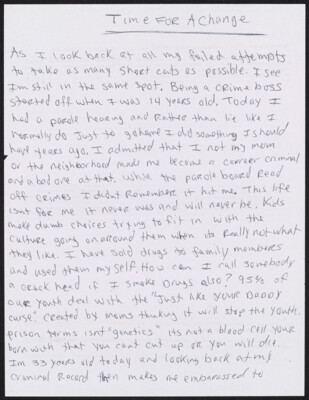 Time For A Change
As I look back at all my failed attempts
to take as many short cuts as possible. I see
Im still in the same spot. Being a crime boss
started off when I was 14 years old. Today I
had a parole hearing and Rather than lie like I
normally do Just to go home I did something I should
have years ago. I admitted that I not my mom
or the neighborhood made me become a carreer criminal
and a bad one at that. While the parole board Read
off crimes I didnt Remember it hit me. This life
isnt for me it never was and will never be. Kids
make dumb choices trying to fit in with the
culture going on around them when its Really not what
they like. I have sold drugs to family members
and used them my self. How can I call somebody
a crack head if I smoke Drugs also? 95% of
our youth deal with the "Just like your Daddy
curse" created by moms thinking it will stop the youth.
prison terms isnt "genetics" its not a blood cell your
born with that you cant cut up or you will die.
Im 33 years old today and looking back at my
criminal Record then makes me embarassed to